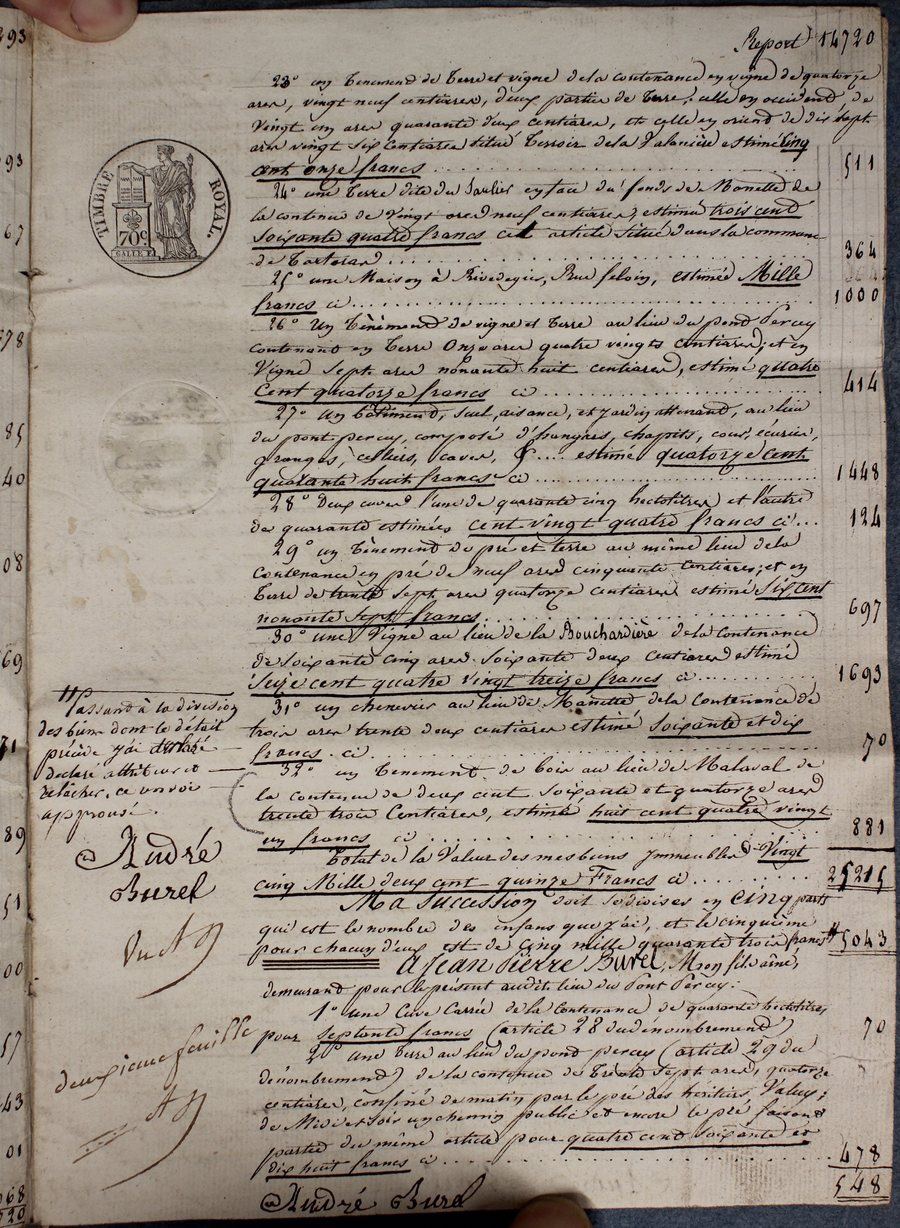 Report 14720
23° un tenement de terre et vigne de la contenance en vigne de quatorze
ares, vingt neuf centiares, deux parties de terre, celle en occident, de
vingt un ares quarante deux centiares, et celle en orient de dix sept
ares vingt six centiares situé terroir de la Valanciere estimé cinq
cent onze francs 511
24° une terre dite du Saulier en face du fonds de Manette de
la contenue de vingt ares neuf centiares, estimée trois cend
soixante quatre francs cet article situé dans la commune
de Tartaras 364
25° une Maison à Rivedegier, Rue feloin, estimée Mille
francs ci 1000
26° un tènement de vigne et terre au lieu du pond Percey
contenant en terre onze ares quatre vingts centiares, et en
vigne sept ares nonante huit centiares, estimé quatre
cent quatorze francs ci 414
27° un bâtiment, suel, aisance, et jardin attenand, au lieu
du pont percey, composé d'hangars, chapits, cour, écurier,
granges, celliers, caves, &.... estimé quatorze cent
quarante huit francs ci 1448
28° deux cuves l'une de quarante cinq hectolitres et l'autre
de quarante estimées cent vingt quatre francs ci 124
29° un tènement de pré et terre au même lieu de la
contenance en pré de neuf ares cinquante centiares, et en
terre de trente sept ares quatorze centiares estimé six cent
nonante sept francs 697
30° une vigne au lieu de la Bouchardière de la contenance
de soixante cinq ares soixante deux centiares estimé
seize cent quatre vingt treize francs ci 1693
31° un chenevier au lieu de Manette de la contenance de
trois ares trente deux centiares estimé soixante et dix
francs ci 70
32° un tenement de bois au lieu de Malaval de
la contenue de deux cent soixante et quatorze ares
trente trois centiares, estimé huit cent quatre vingt
un francs ci 881
Total de la valeur des mes biens immeubles vingt
cinq Mille deux cent quinze francs ci 25215
Ma succession doit se divises en cinq parts
qui est le nombre des enfans que j'ai, et le cinquième
pour chacun d'eux est de cinq mille quarante trois francs # 5043
A Jean Pierre Burel, Mon fils ainé,
demeurand pour le présent audit lieu du Pont Percey:
1° une Cuve Carrée de la contenance de quarante hectolitres
pour septante francs (article 28 du dénombrement) 70
2° une terre au lieu du pond percey (article 29 du
dénombrement) de la contenue de trente sept ares, quatorze
centiares, confiné de matin par le pré des héritiers Valuy;
de Midi et soir un chemin public et encore le pré faisand
partie du même article pour quatre cend soixante et
dix huit francs ci 478
548
André Burel
TIMBRE ROYAL.
70c
# Passant à la division
des biens dont le détail
précède j'ai
déclaré attribuer et
relâcher, ce renvoi
approuvé.
André
Burel
Vu
deuxieme feuille
293
293
67
378
85
40
08
69
71
89
51
00
57
43
01
68
520